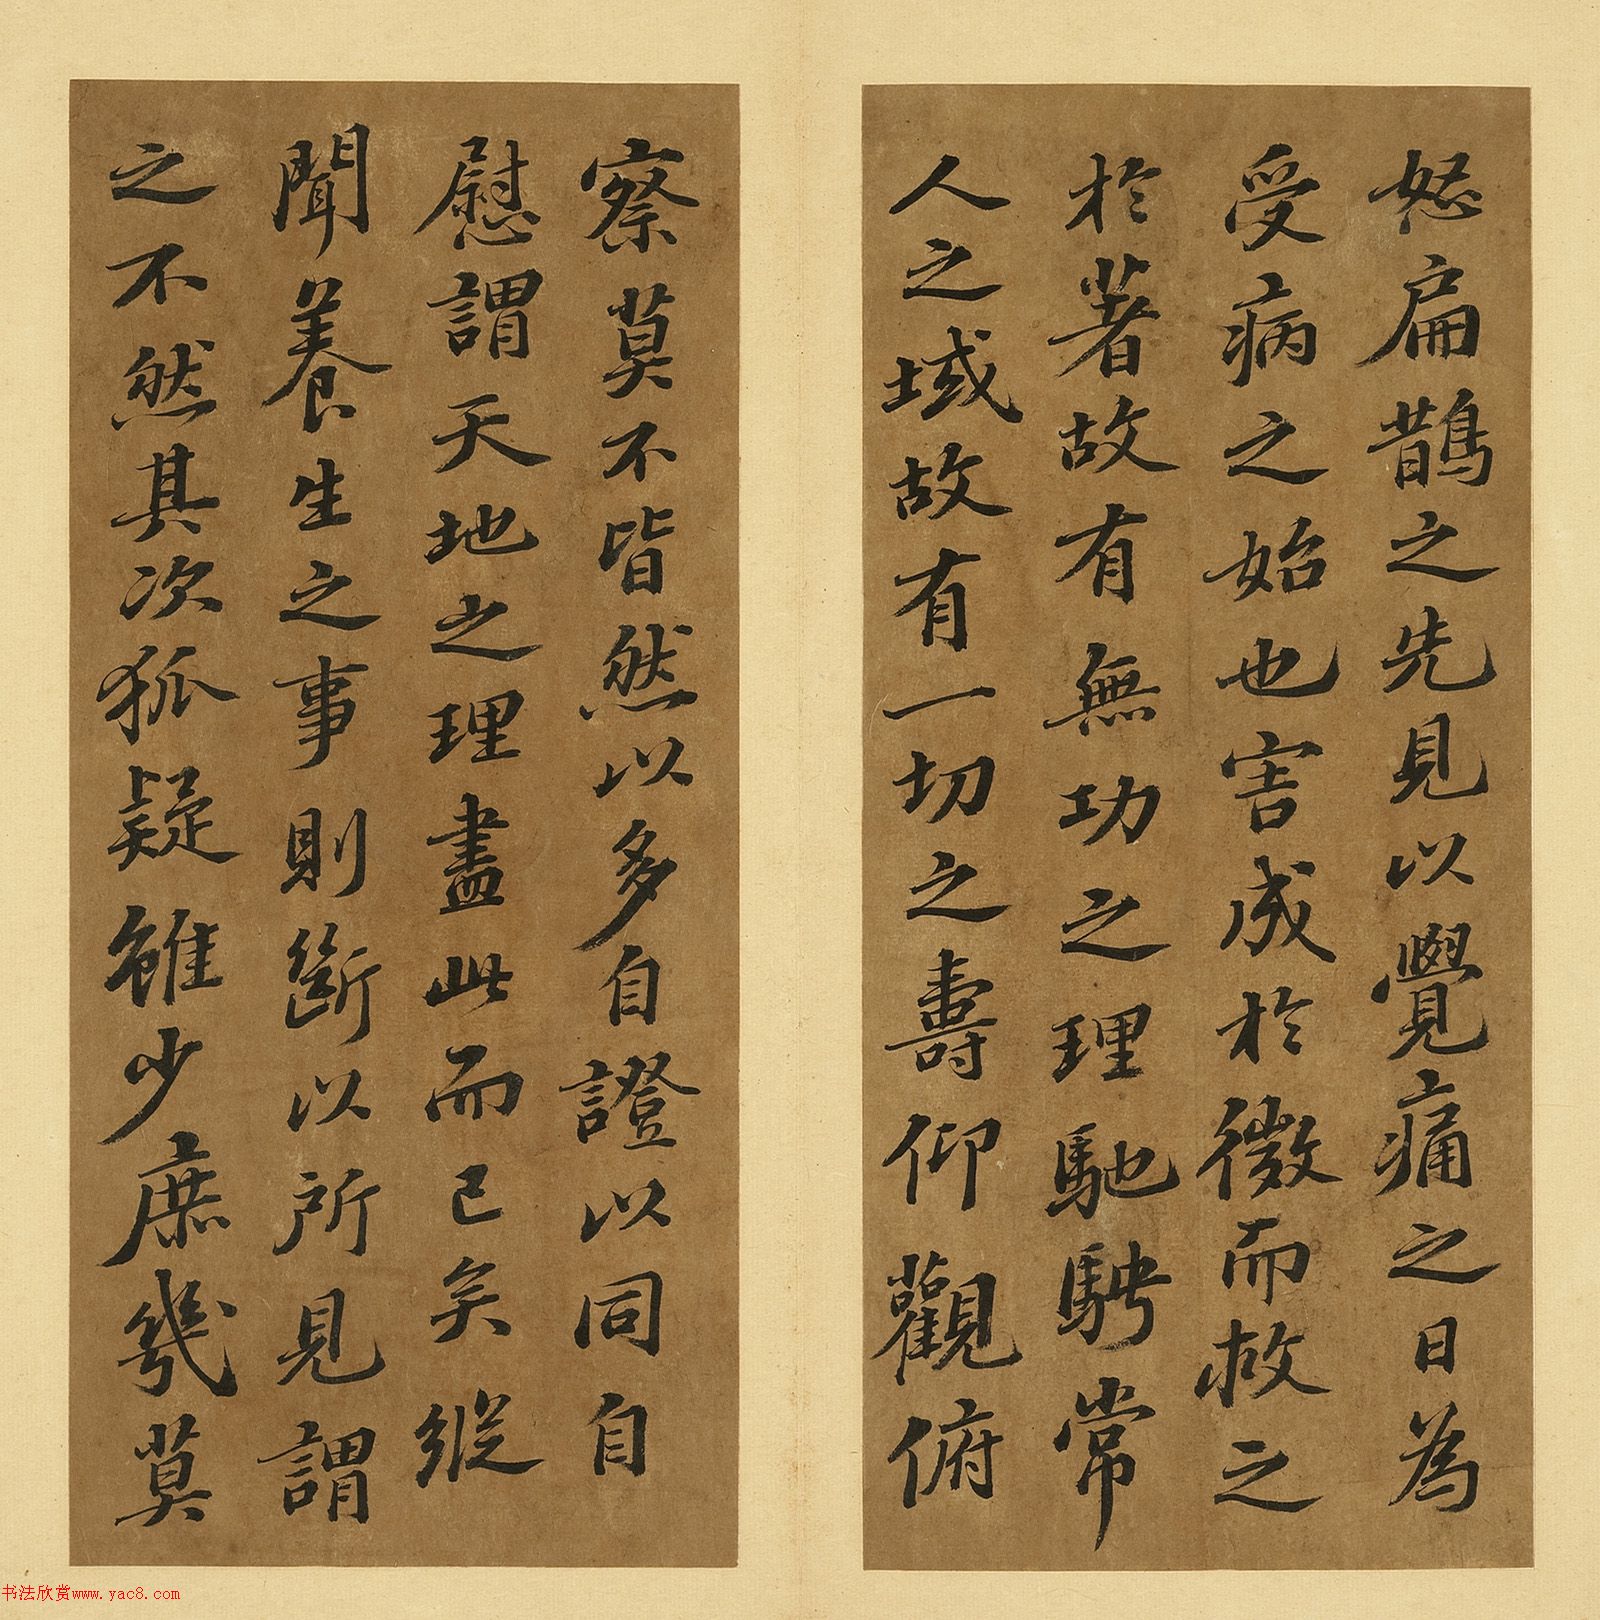 怒扁鵲之先見以覺痛之日為
受病之始也害成於微而救之
於著故有無功之理馳騁常
人之域故有一切之壽仰觀俯
察莫不皆然以多自證以同自
慰謂天地之理盡此而已矣縱
聞養生之事則斷以所見謂
之不然其次狐疑雖少庶幾莫
书法欣赏www.yac8.com